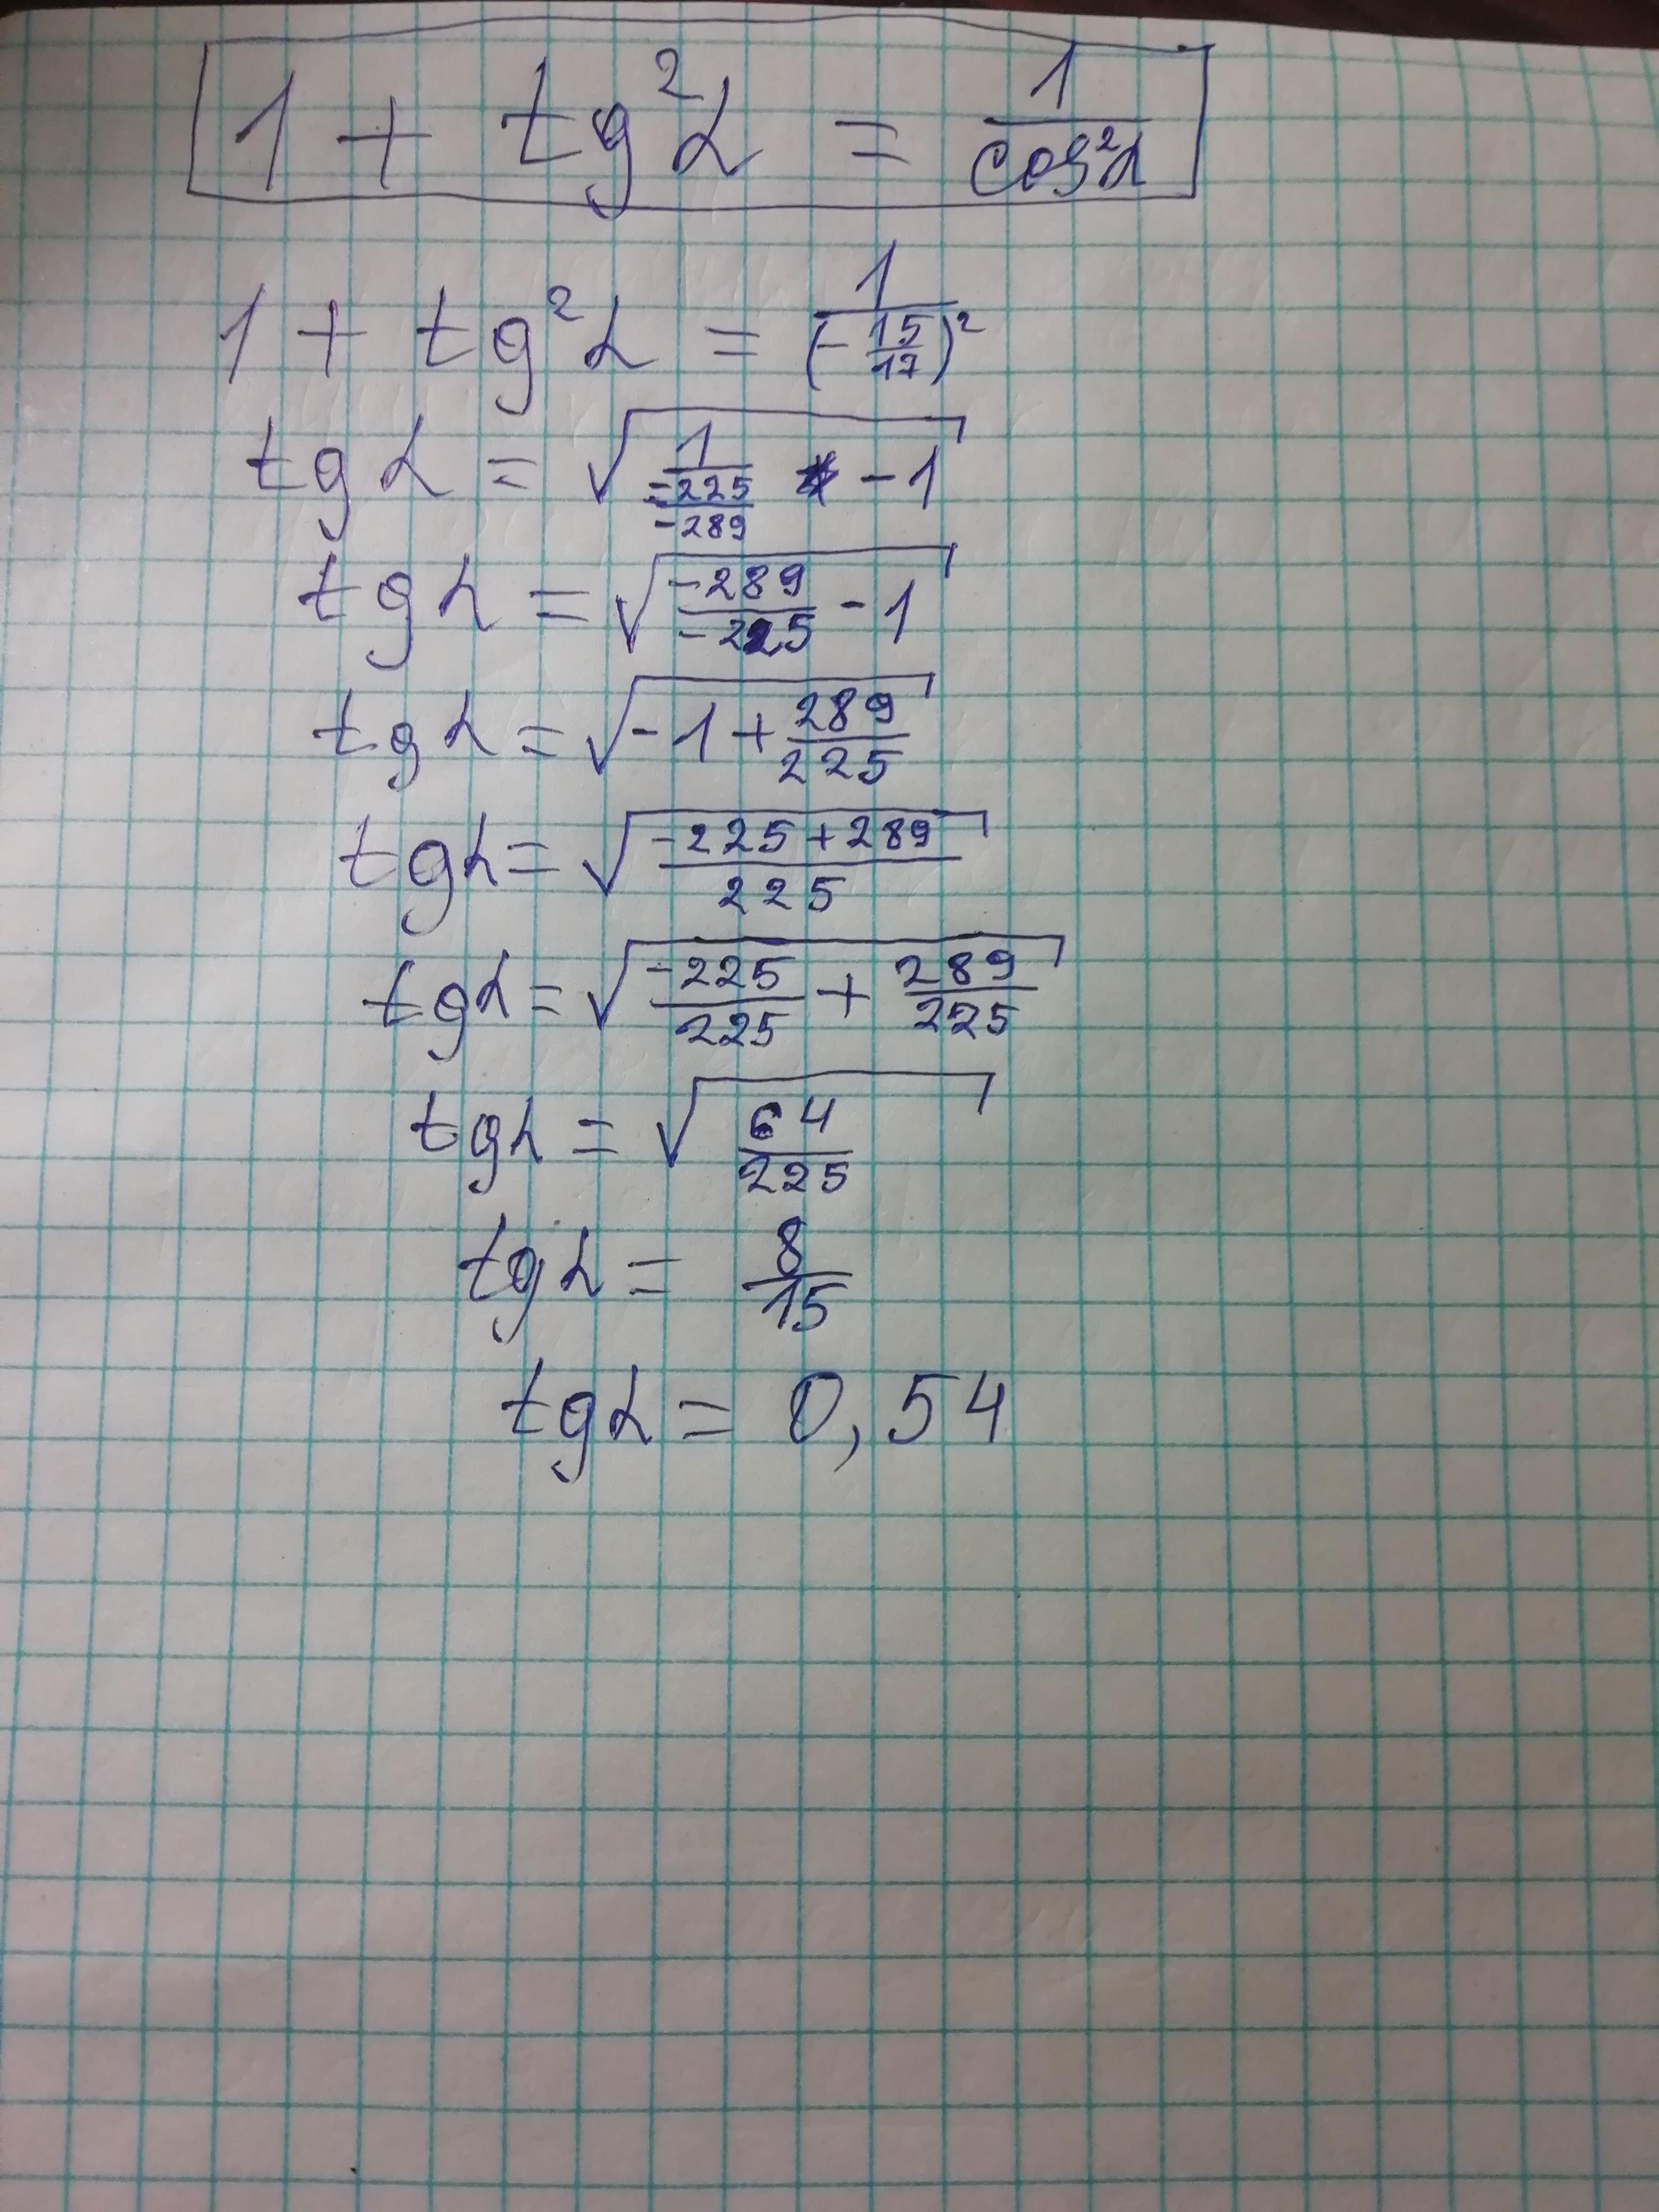 1 + tg²α = 1/cos²α
1 + tg²α = 1/(-15/17)²
tgα = √(1/(-225/-289) - 1)
tgα = √(-289/-225 - 1)
tgα = √(-1 + 289/225)
tgα = √((-225 + 289)/225)
tgα = √(-225/225 + 289/225)
tgα = √(64/225)
tgα = 8/15
tgα = 0,54